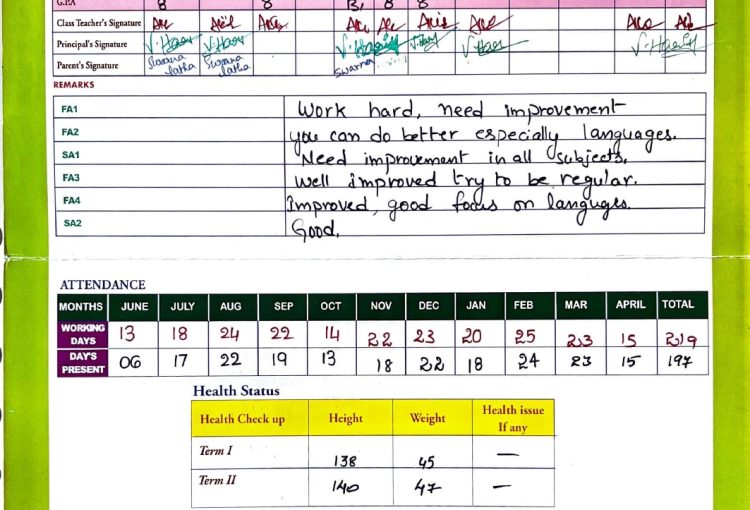 G.P.A 8 8 B1 8 8
Class Teacher's Signature
Principal's Signature
Parent's Signature
REMARKS
FA1 Work hard, need improvement
FA2 you can do better especially languages.
SA1 Need improvement in all subjects.
FA3 Well improved try to be regular.
FA4 Improved, good focus on languges.
SA2 Good.
ATTENDANCE
MONTHS JUNE JULY AUG SEP OCT NOV DEC JAN FEB MAR APRIL TOTAL
WORKING DAYS 13 18 24 22 14 22 23 20 25 23 15 219
DAY'S PRESENT 06 17 22 19 13 18 22 18 24 23 15 197
Health Status
Health Check up Height Weight Health issue If any
Term I 138 45 —
Term II 140 47 —